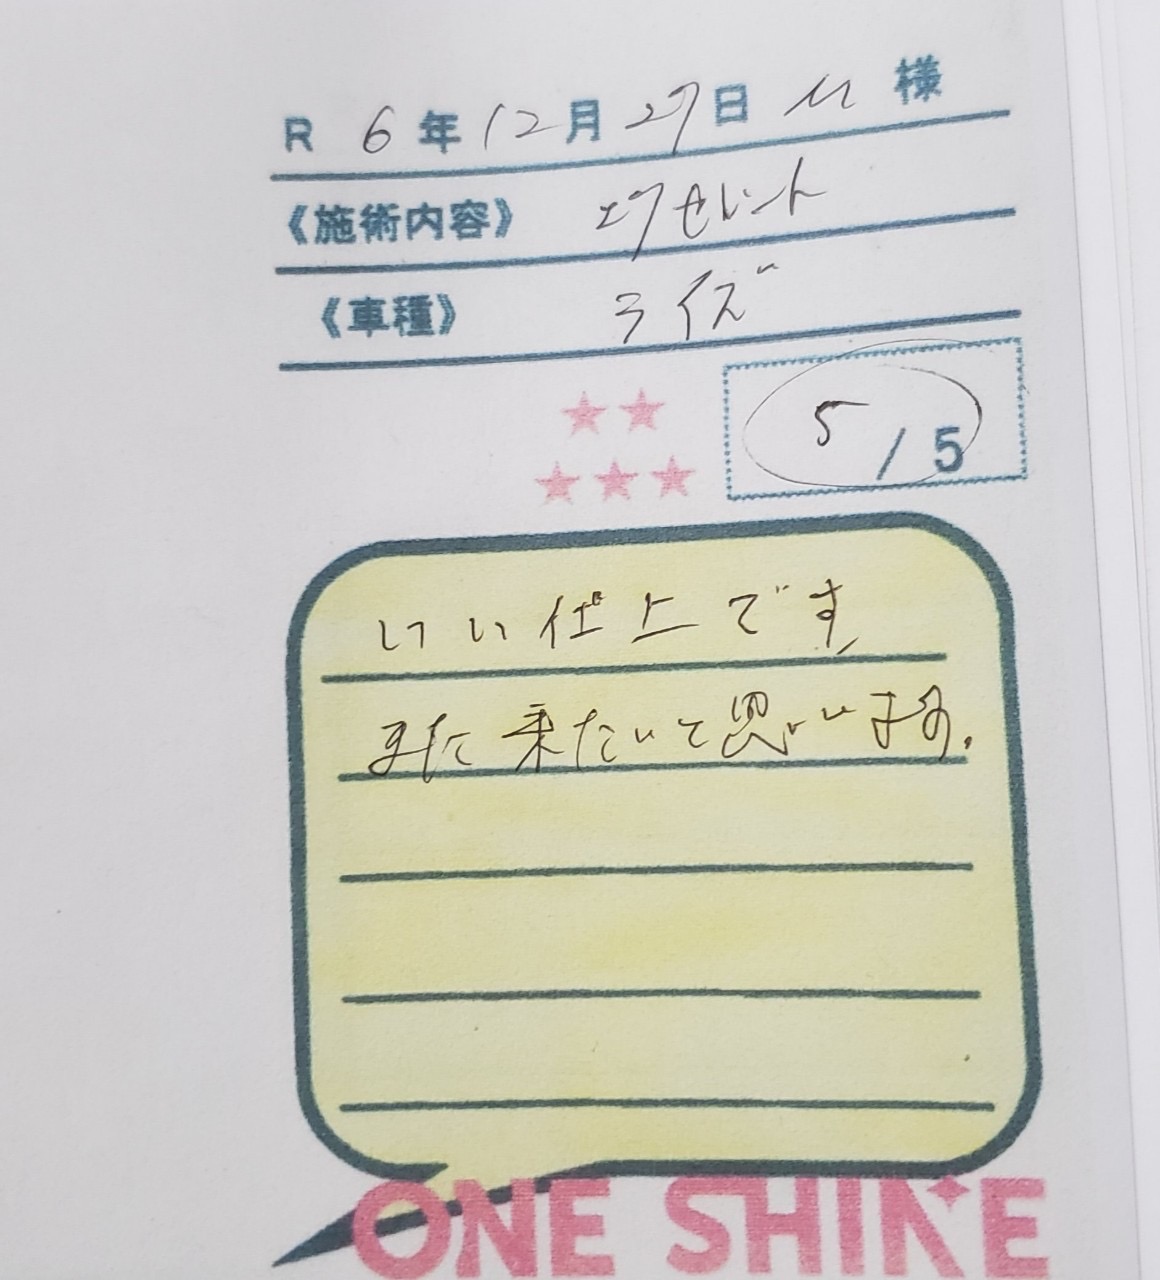 R 6年12月27日 M 様
《施術内容》 エクセレント
《車種》 ライズ
5/5
いい仕上です
また来たいと思います。
ONE SHINE